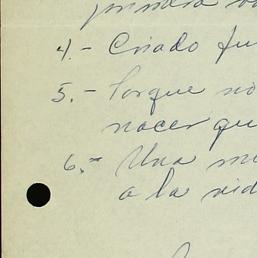 primera
4.- Criado fu
5.- Porque no
nacer qu
6.- Una m
a la vid